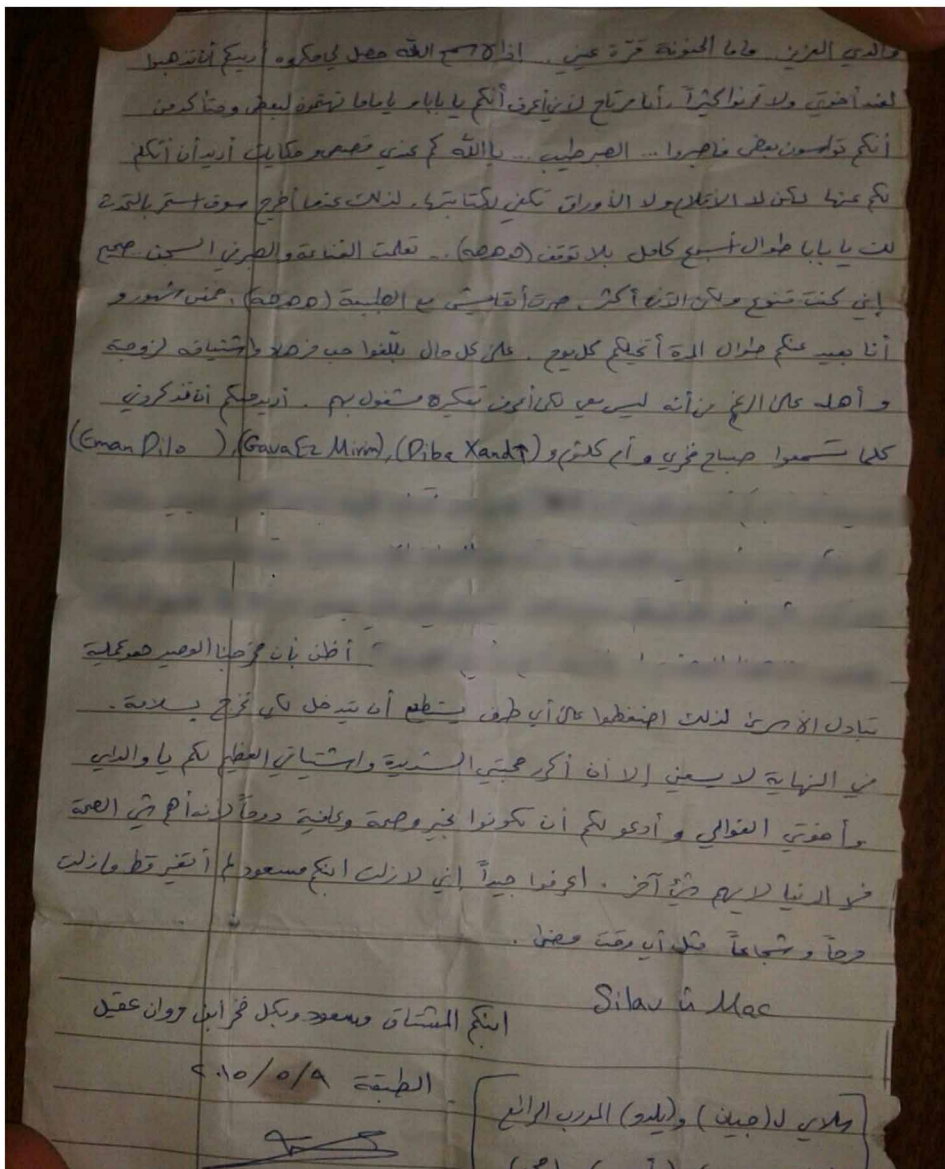 والدي العزيز.. ماما الحنونة قرة عيني. إذا لا سمح الله حصل لي مكروه أريدكم أن تذهبوا
لعند أخوتي ولا تحزنوا كثيراً. أنا مرتاح لأني أعرف أنكم يا بابا و يا ماما تهتمون لبعض ومتأكد من
أنكم تواسون بعض فاصبروا... الصبر طيب... يا الله كم عندي قصص و حكايات أريد أن أتكلم
لكم عنها لكن لا الأقلام ولا الأوراق تكفي لكتابتها. لذلك عندما أخرج سوف استمر بالتحدث
لك يا بابا طوال أسبوع كامل بلا توقف (هههه).. تعلمت القناعة والصبر في السجن. صحيح
إني كنت قنوع ولكن الآن أكثر. صرت أتقايش مع الطيبة (هههه). خمس شهور و
أنا بعيد عنكم طوال المدة أتخيلكم كل يوم. على كل حال بلّغوا حب فرهاد واشتياقه لزوجته
و أهله على الرغم من أنه ليس معي لكن أعرف تفكيره مشغول بهم. أريد منكم أن تذكروني
كلما تسمعوا صباح فخري و أم كلثوم و (Diba Xand), (Gava Ez Mirim), (Eman Dilo)
أظن بأن مخرجنا الوحيد هو عملية
تبادل الأسرى لذلك اضغطوا على أي طرف يستطيع أن يتدخل لكي نخرج بسلامة.
في النهاية لا يسعني إلا أن أكرر محبتي الشديدة واشتياقي العظيم لكم يا والداي
وأخوتي الغوالي و أدعو لكم أن تكونوا بخير وصحة وعافية دوماً لأنه أهم شي الصحة
في الدنيا لا يهم شيء آخر. اعرفوا جيداً إني لازلت ابنكم مسعود لم أتغير قط ومازلت
مرحاً و شجاعاً مثل أي وقت مضى.
Silav û Mac
ابنكم المشتاق مسعود وبكل فخر ابن مروان عقيل
الطبقة ٢٠١٥/٥/٩
سلامي ل(جيين) و(يلدو) المدرب الرائع